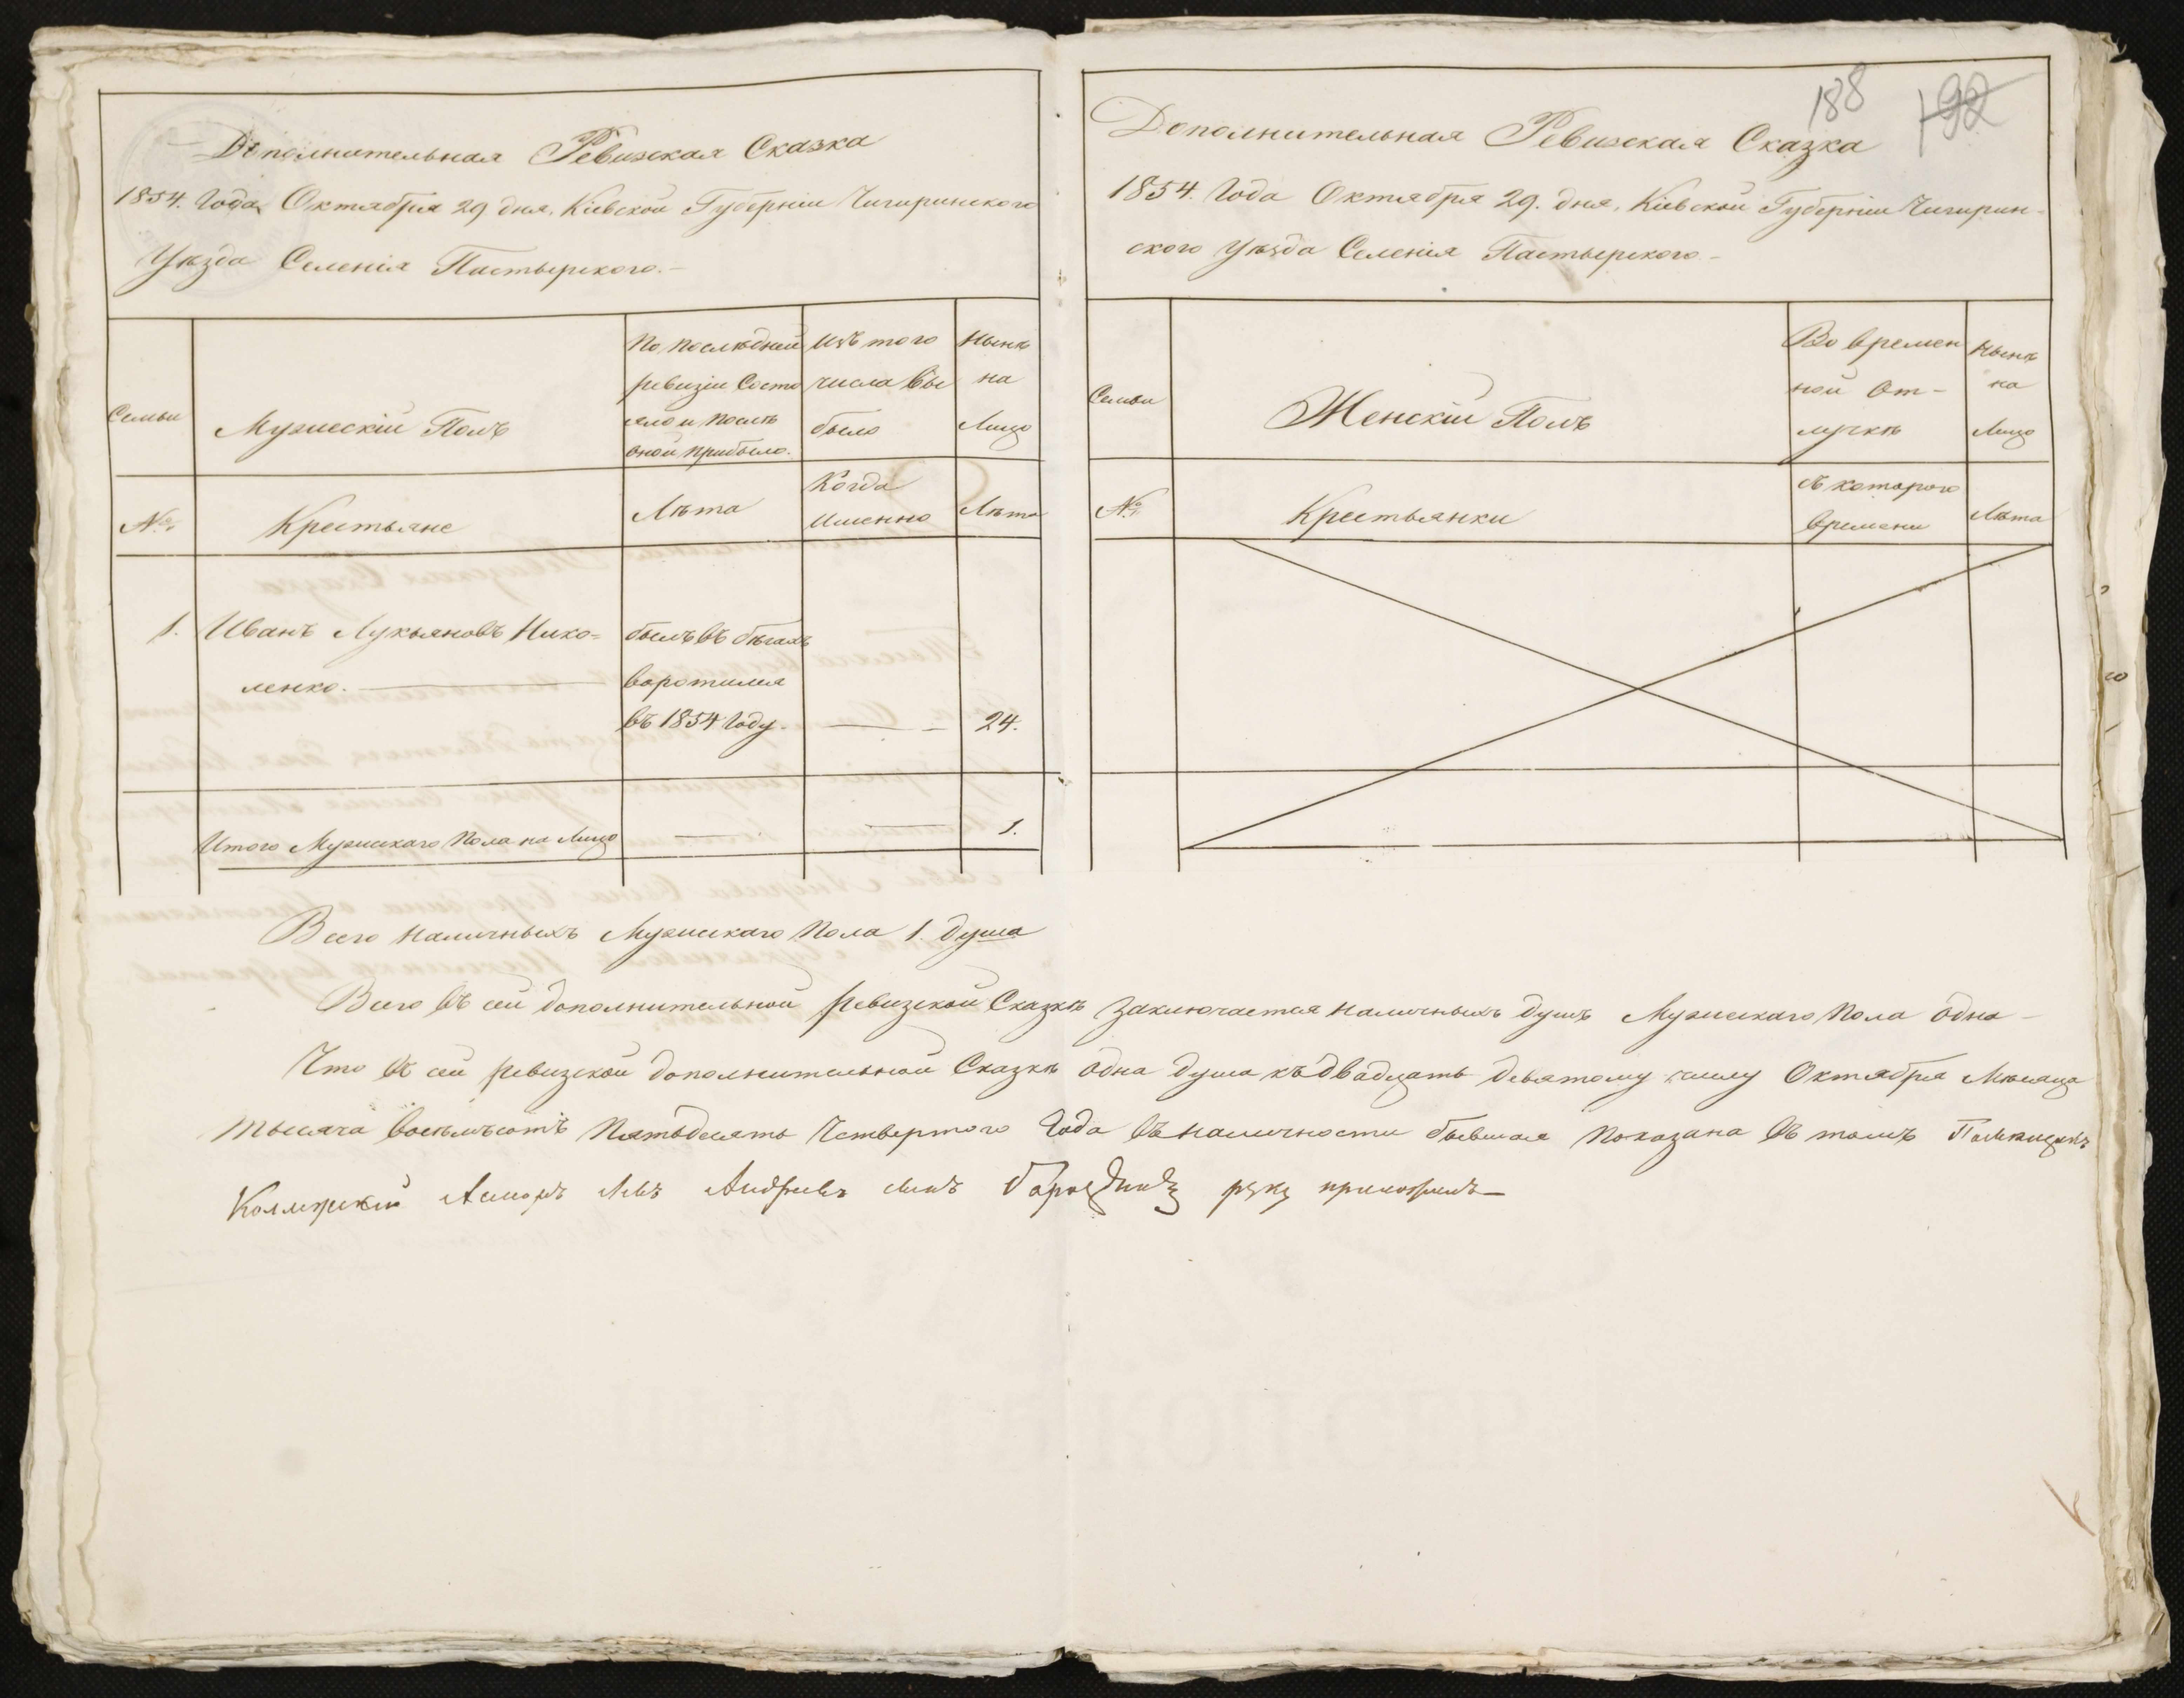 Дополнительная Ревизская Сказка
1854. Года Октября 29 дня, Кіевской Губерніи Чигиринского
Уѣзда Селенія Пастырского.-
Семьи
Мужескій Полъ
По последней
ревизіи Состо
яло и послѣ
оной прибыло.
Изъ того
числа вы
было
Нынѣ
на
Лицо
№.
Крестьяне
Лѣта
Когда
Именно
Лѣта
1.
Иванъ Лукьяновъ Нико=
ленко.
былъ въ бѣгахъ
воротился
въ 1854 Году.
24.
Итого Мужескаго Пола на Лицо
1.
188
192
Дополнительная Ревизская Сказка
1854. Года Октября 29. дня, Кіевской Губерніи Чигирин-
ского Уѣзда Селенія Пастырского-
Семьи
Женскій Полъ
Во времен
ной От-
лучкѣ
Нынѣ
на
Лицо
№
Крестьянки
съ которого
времени
Лѣта
Всего Наличныхъ Мужескаго Пола 1. душа
Всего въ сей дополнительной ревизской Сказкѣ заключается наличныхъ душъ Мужескаго Пола одна-
Что въ сей ревизской дополнительной Сказкѣ одна душа къ двадцать девятому числу Октября Мѣсяца
тысяча восемьсотъ Пятьдесять Четвертого Года въ наличности бывшая Показана въ томъ Помѣщикъ
Коллежскій Левъ Андреевъ сынъ руку приложилъ-